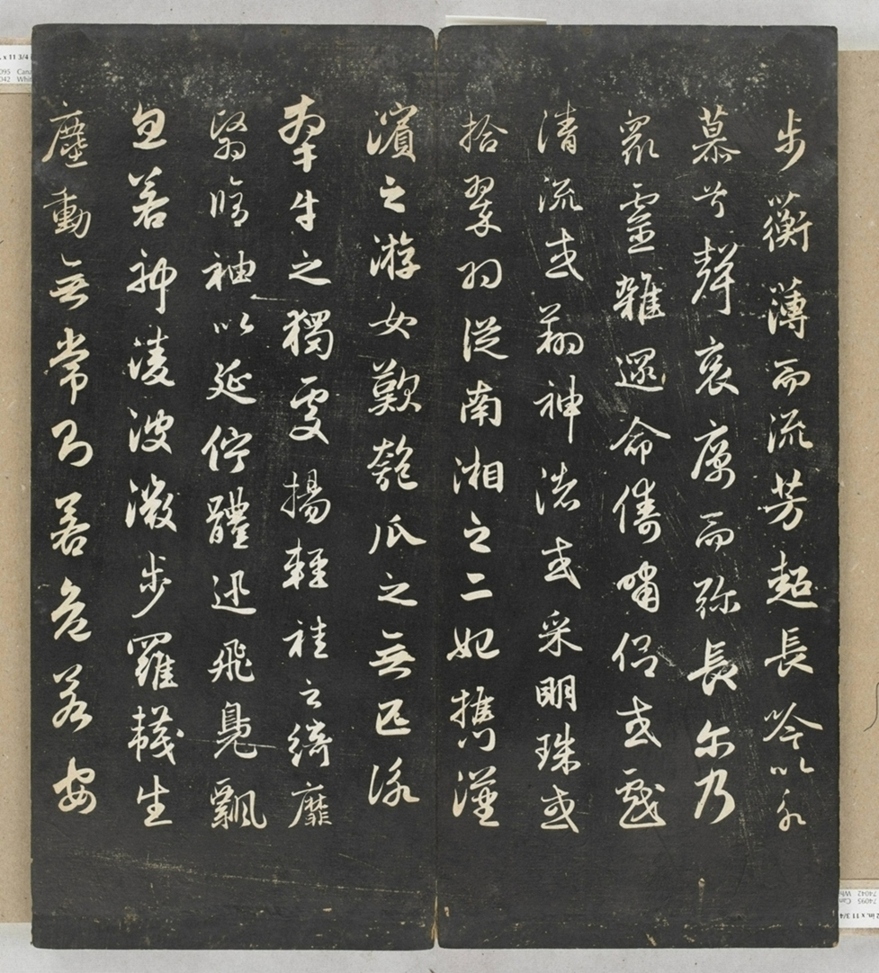 步蘅薄而流芳超長吟以永
慕兮聲哀厲而弥長尓乃
衆靈雜遝命儔嘯侶或戲
清流或翔神渚或采明珠或
拾翠羽從南湘之二妃攜漢
濱之游女歎匏瓜之無匹詠
牽牛之獨處揚輕袿之綺靡
翳脩袖以延佇體迅飛鳧飄
忽若神淩波微步羅韈生
塵動無常則若危若安
x 11 3/4
74095
74042